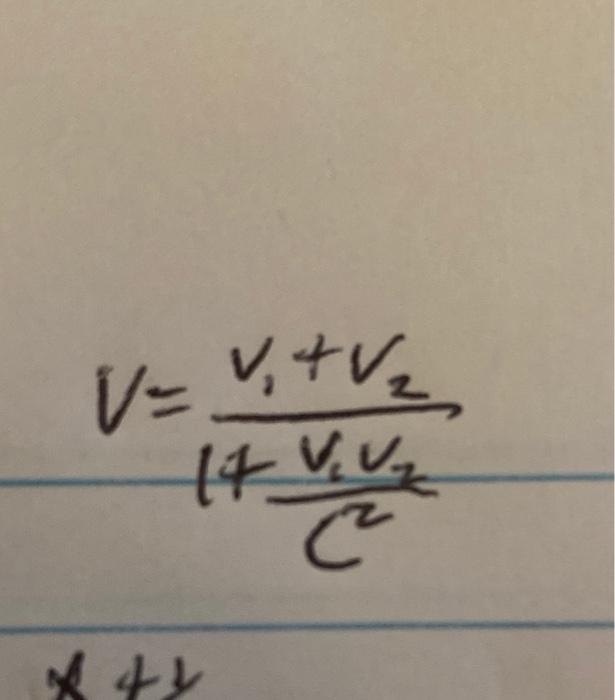 V = (V₁ + V₂) / (1 + V₁V₂ / C²)
x + y